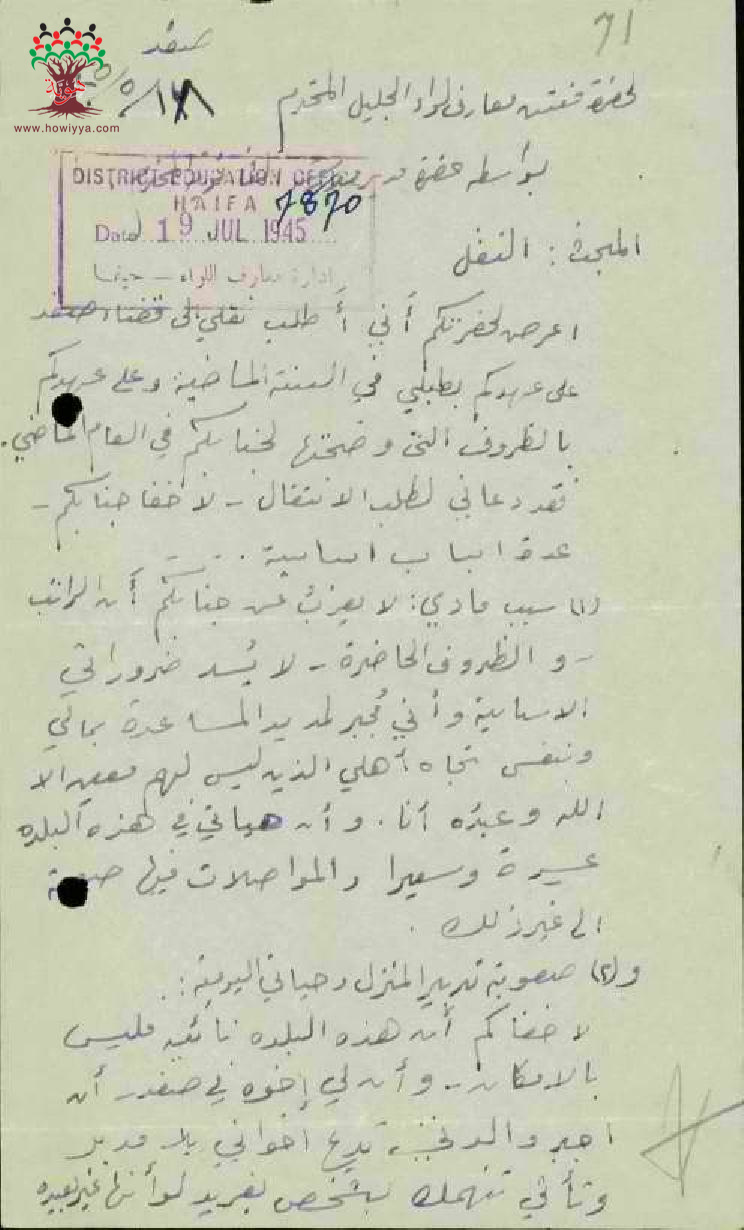 71
صفد
هوية
www.howiyya.com
لحضرة مفتش معارف لواء الجليل المحترم
بواسطة حضرة مدير
DISTRICT EDUCATION OFFICE
HAIFA
7870
Date 19 JUL 1945
ادارة معارف اللواء - حيفا
المبحث : النقل
اعرض لحضرتكم أني أطلب نقلي الى قضاء صفد
على عهدكم بطلبي في السنة الماضية وعلى عهدكم
بالظروف التي وضحتها لجنابكم في العام الماضي.
فقد دعاني لطلب الانتقال - لا خفا جنابكم -
عدة اسباب اساسية . . .
(١) سبب مادي : لا يعزب عن جنابكم أن الراتب
- والظروف الحاضرة - لا يسد ضروراتي
الاساسية وأني مجبر لمد يد المساعدة بمالي
وبنفسي تجاه أهلي الذين ليس لهم معين الا
الله وعبده أنا . وأن حياتي في هذه البلده
عسيرة والمواصلات فيها صعبة
الى غير ذلك .
و(٢) صعوبة تدبير المنزل وحياتي اليومية :.
لا خفاكم أن هذه البلده نائية فليس
بالامكان - وأن لي إخوه في صفد - أن
اجبر والدتي تدع اخواني بلا مدبر
وتأتي تنهمك بشخص بفريد لو أنها غير بعيده